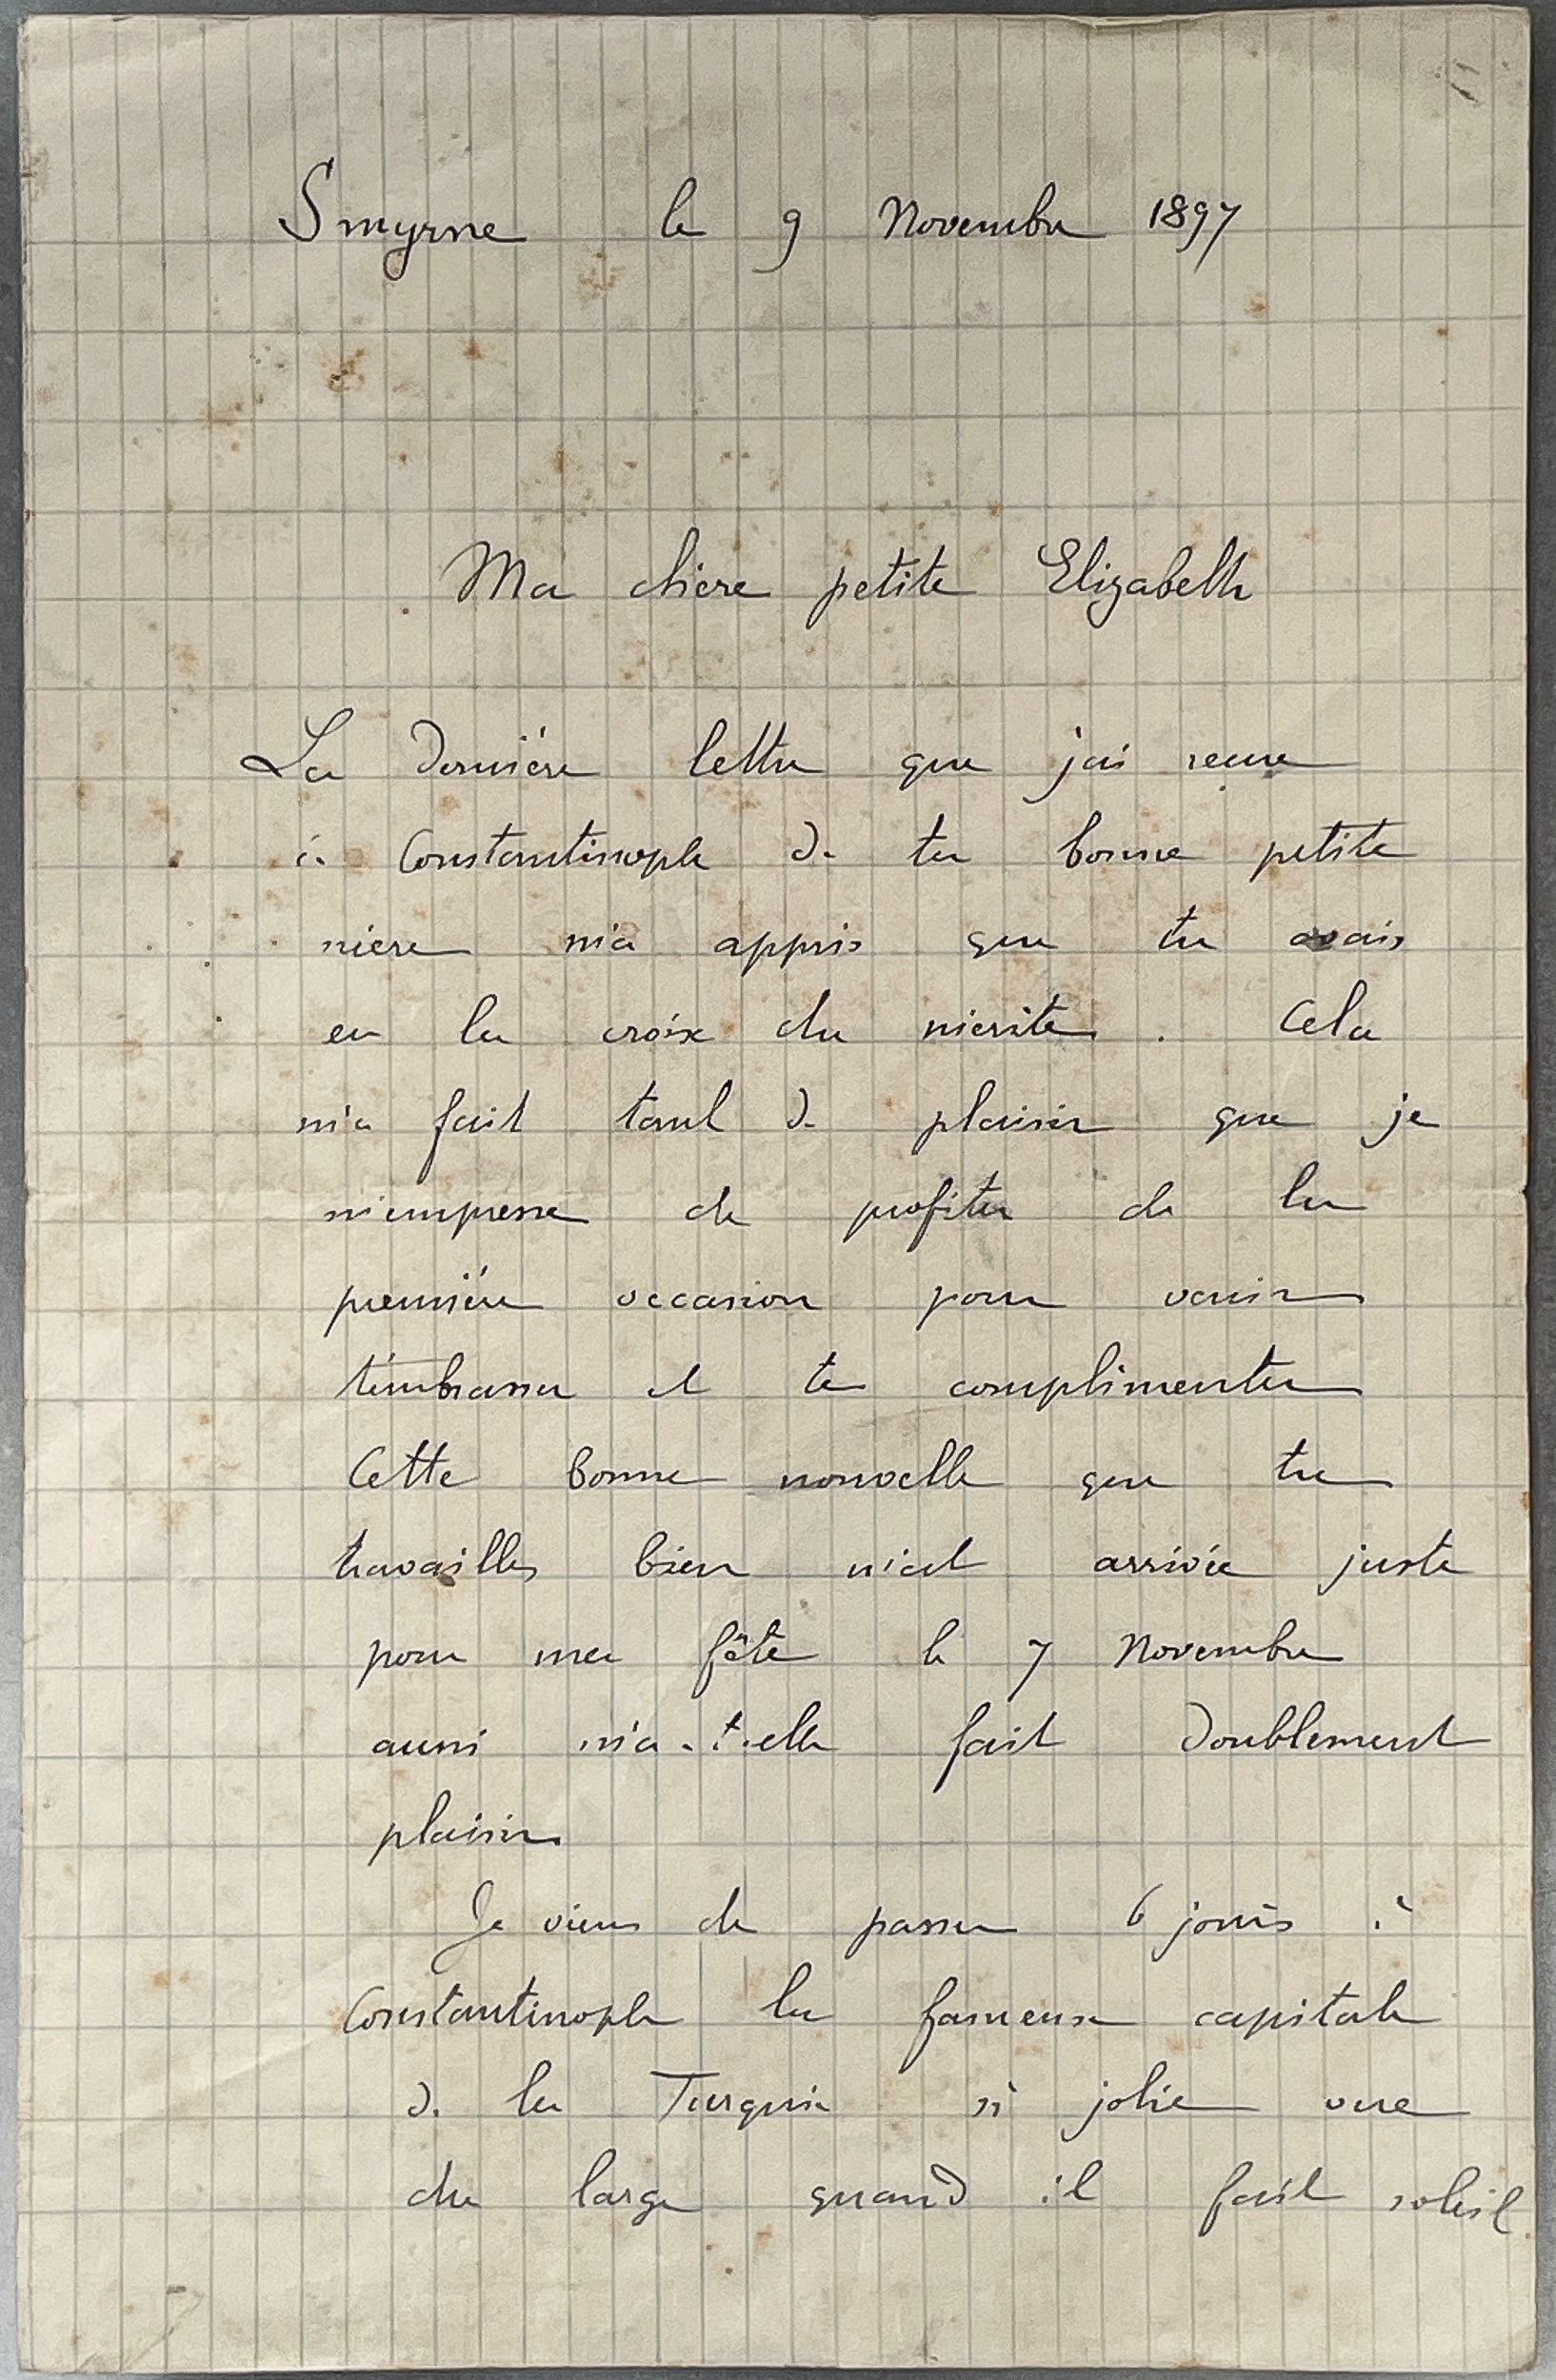 Smyrne le 9 Novembre 1897
Ma chère petite Elizabeth
La dernière lettre que j'ai reçue
à Constantinople de ta bonne petite
mère m'a appris que tu avais
eu la croix du mérite. Cela
m'a fait tant de plaisir que je
m'empresse de profiter de la
première occasion pour venir
t'embrasser et te complimenter
Cette bonne nouvelle que tu
travailles bien m'est arrivée juste
pour ma fête le 7 Novembre
aussi m'a-t-elle fait doublement
plaisir.
Je viens de passer 6 jours à
Constantinople la fameuse capitale
de la Turquie si jolie vue
du large quand il fait soleil.